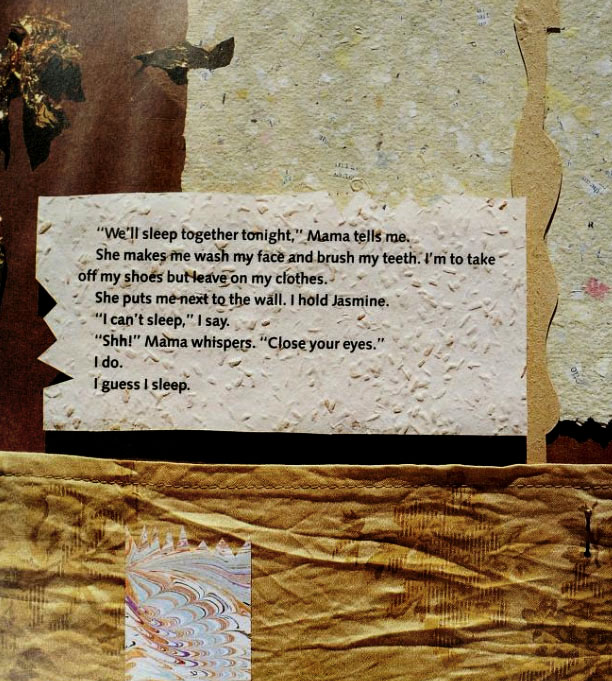 “We’ll sleep together tonight,” Mama tells me.
She makes me wash my face and brush my teeth. I’m to take
off my shoes but leave on my clothes.
She puts me next to the wall. I hold Jasmine.
“I can’t sleep,” I say.
“Shh!” Mama whispers. “Close your eyes.”
I do.
I guess I sleep.